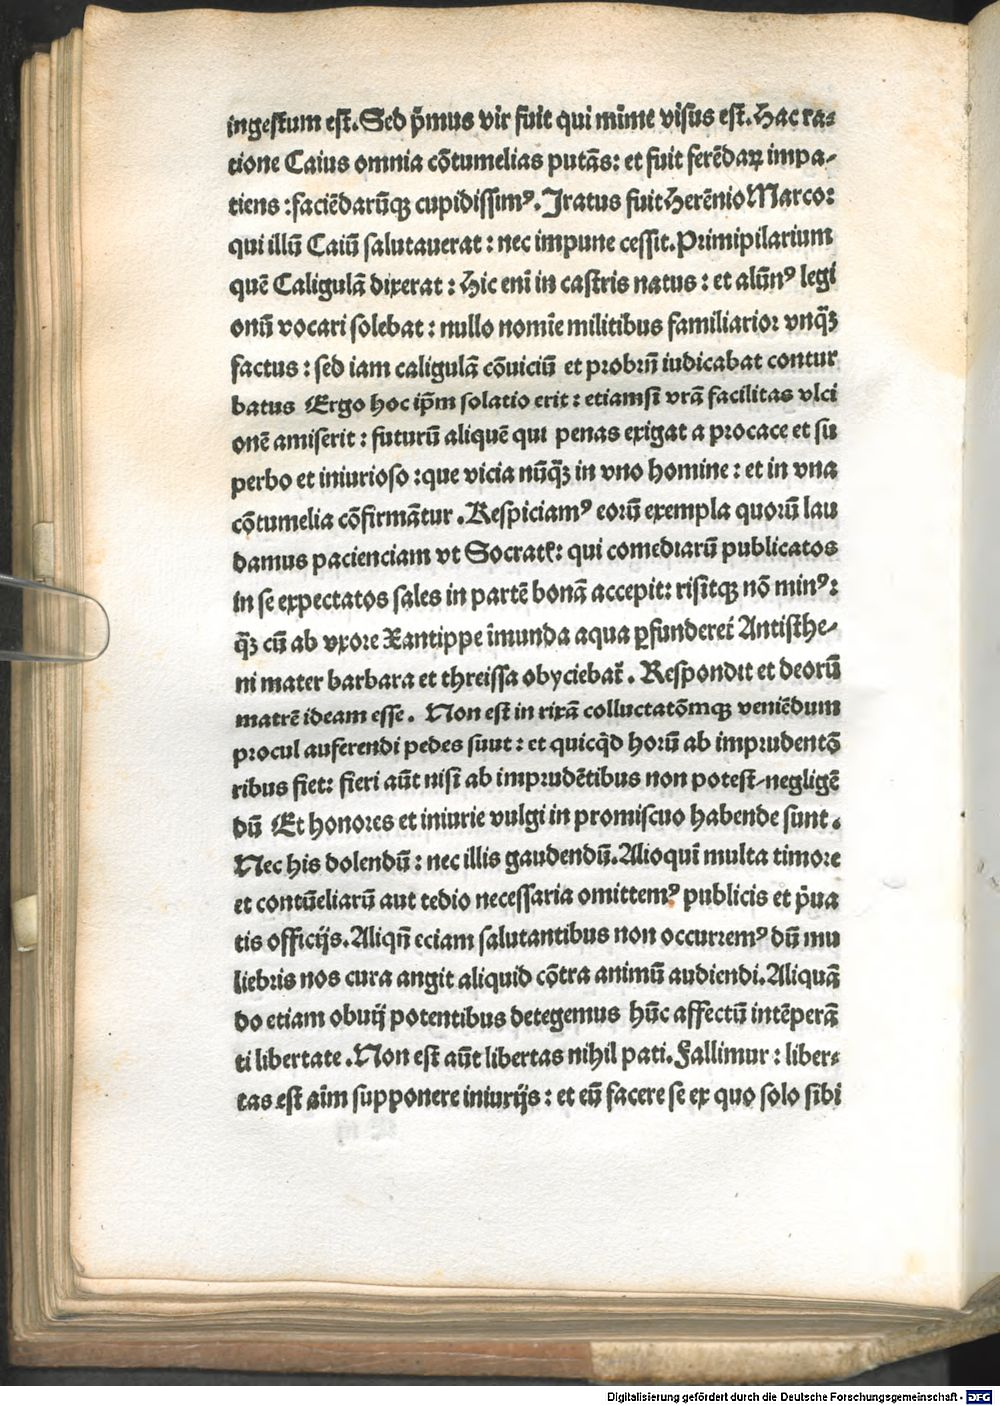 ingestum est. Sed p̄mus vir fuit qui mīme visus est. Hac ra-
tione Caius omnia cōtumelias putās: et fuit ferēdaꝝ impa-
tiens : faciēdarūqꝫ cupidissimꝰ. Iratus fuit Herēnio Marco:
qui illū Caiū salutauerat : nec impune cessit. Primipilarium
quē Caligulā dixerat : Hic eni in castris natus : et alūnꝰ legi
onū vocari solebat : nullo nomīe militibus familiarior vnq̄ꝫ
factus : sed iam caligulā cōuiciū et probrū iudicabat contur
batus Ergo hoc ip̄m solatio erit : etiamsi vrā facilitas vlci
onē amiserit : futurū aliquē qui penas exigat a procace et su
perbo et iniurioso : que vicia nūq̄ꝫ in vno homine : et in vna
cōtumelia cōfirmātur . Respiciamꝰ eorū exempla quorū lau
damus pacienciam vt Socratꝭ: qui comediarū publicatos
in se expectatos sales in partē bonā accepit: risitqꝫ nō minꝰ:
q̄ꝫ cū ab vxore Xantippe īmunda aqua ꝑfunderet̄ Antisthe-
ni mater barbara et threissa obyciebat̄ . Respondit et deorū
matrē ideam esse . Non est in rixā colluctatōmqꝫ veniēdum
procul auferendi pedes sunt : et quicq̄d horū ab imprudentō
ribus fiet: fieri aūt nisi ab imprudētibus non potest-negligē
dū Et honores et iniurie vulgi in promiscuo habende sunt .
Nec his dolendū : nec illis gaudendū. Alioqui multa timore
et contūeliarū aut tedio necessaria omittemꝰ publicis et p̄ua
tis officijs. Aliqn̄ eciam salutantibus non occurremꝰ dū mu
liebris nos cura angit aliquid cōtra animū audiendi. Aliquā
do etiam obuij potentibus detegemus hūc affectū intēperā
ti libertate . Non est aūt libertas nihil pati. Fallimur : liber-
tas est aīm supponere iniurijs : et eū facere se ex quo solo sibi
Digitalisierung gefördert durch die Deutsche Forschungsgemeinschaft - DFG